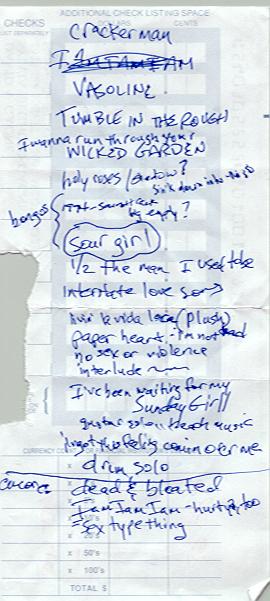 ADDITIONAL CHECK LISTING SPACE
CHECKS DOLLARS CENTS
LIST SEPARATELY
Crackerman
VASOLINE
TUMBLE IN THE ROUGH
I wanna run through your
WICKED GARDEN
holy roses / shadow?
sink down into
bongos
big empty?
sour girl
1/2 the man I used to be
interstate love song
livin la vida loca (plush)
paper heart, I'm not dead
no sex or violence
interlude
I've been waiting for my
Sunday Girl
guitar solo, music
I got this feeling comin over me
CURRENCY
drum solo
x 1's
encore
dead & bloated
I am I am I am - hurts, too
= sex type thing
x 50's
x 100's
TOTAL $